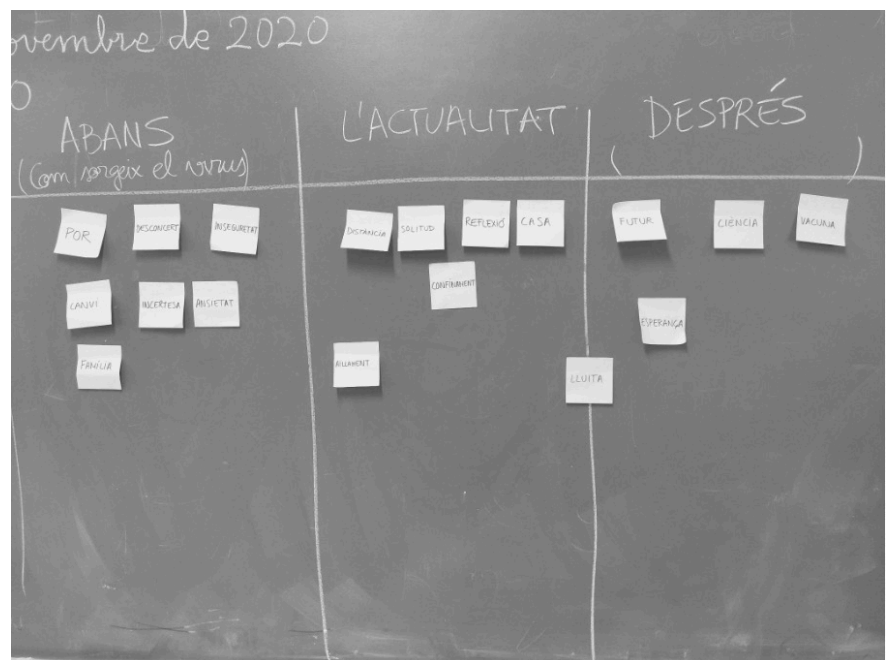 ovembre de 2020
0
ABANS
(Com sorgeix el virus)
POR
DESCONCERT
INSEGURETAT
CANVI
INCERTESA
ANSIETAT
FAMÍLIA
L'ACTUALITAT
DISTÀNCIA
SOLITUD
REFLEXIÓ
CASA
CONFINAMENT
AÏLLAMENT
LLUITA
DESPRÉS
( )
FUTUR
CIÈNCIA
VACUNA
ESPERANÇA